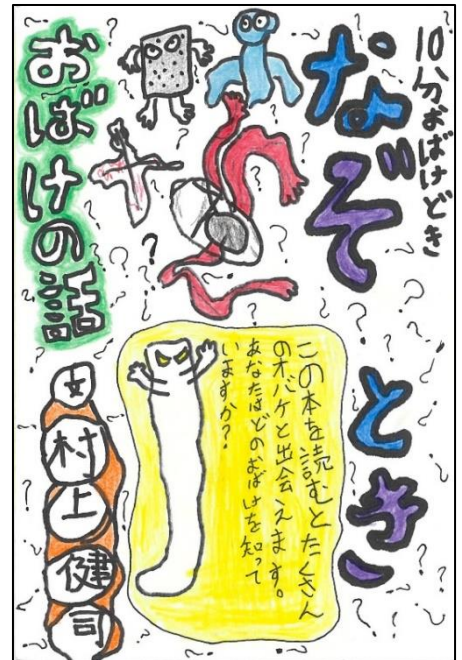 10分おばけどき
なぞとき
この本を読むとたくさん
のオバケと出会えます。
あなたはどのおばけを知って
いますか?
おばけの話
文村上健司